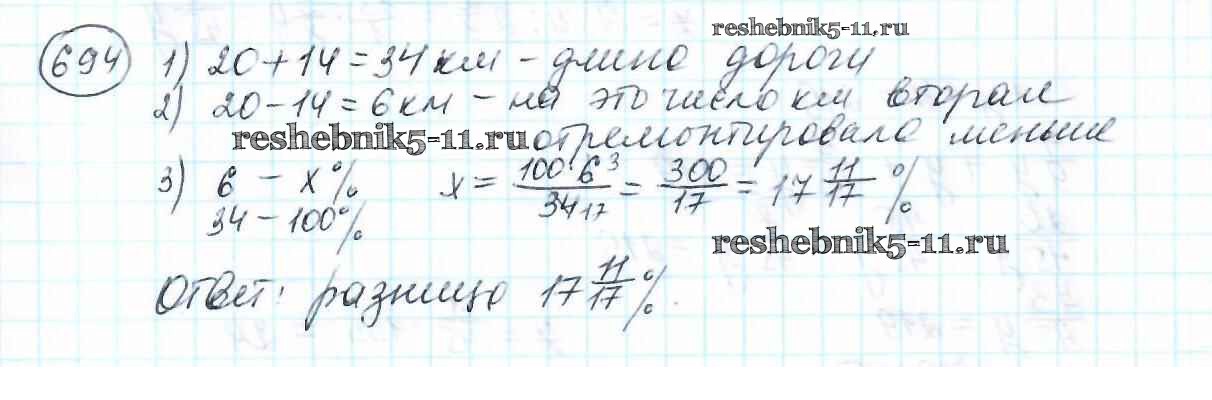 reshebnik5-11.ru
694 1) 20+14=34 км – длина дороги
2) 20-14=6 км – на это число км вторая
reshebnik5-11.ru отремонтировала меньше
3) 6 – x% x = 100·6³/34₁₇ = 300/17 = 17 11/17 %
34 – 100%
reshebnik5-11.ru
Ответ: разница 17 11/17 %.